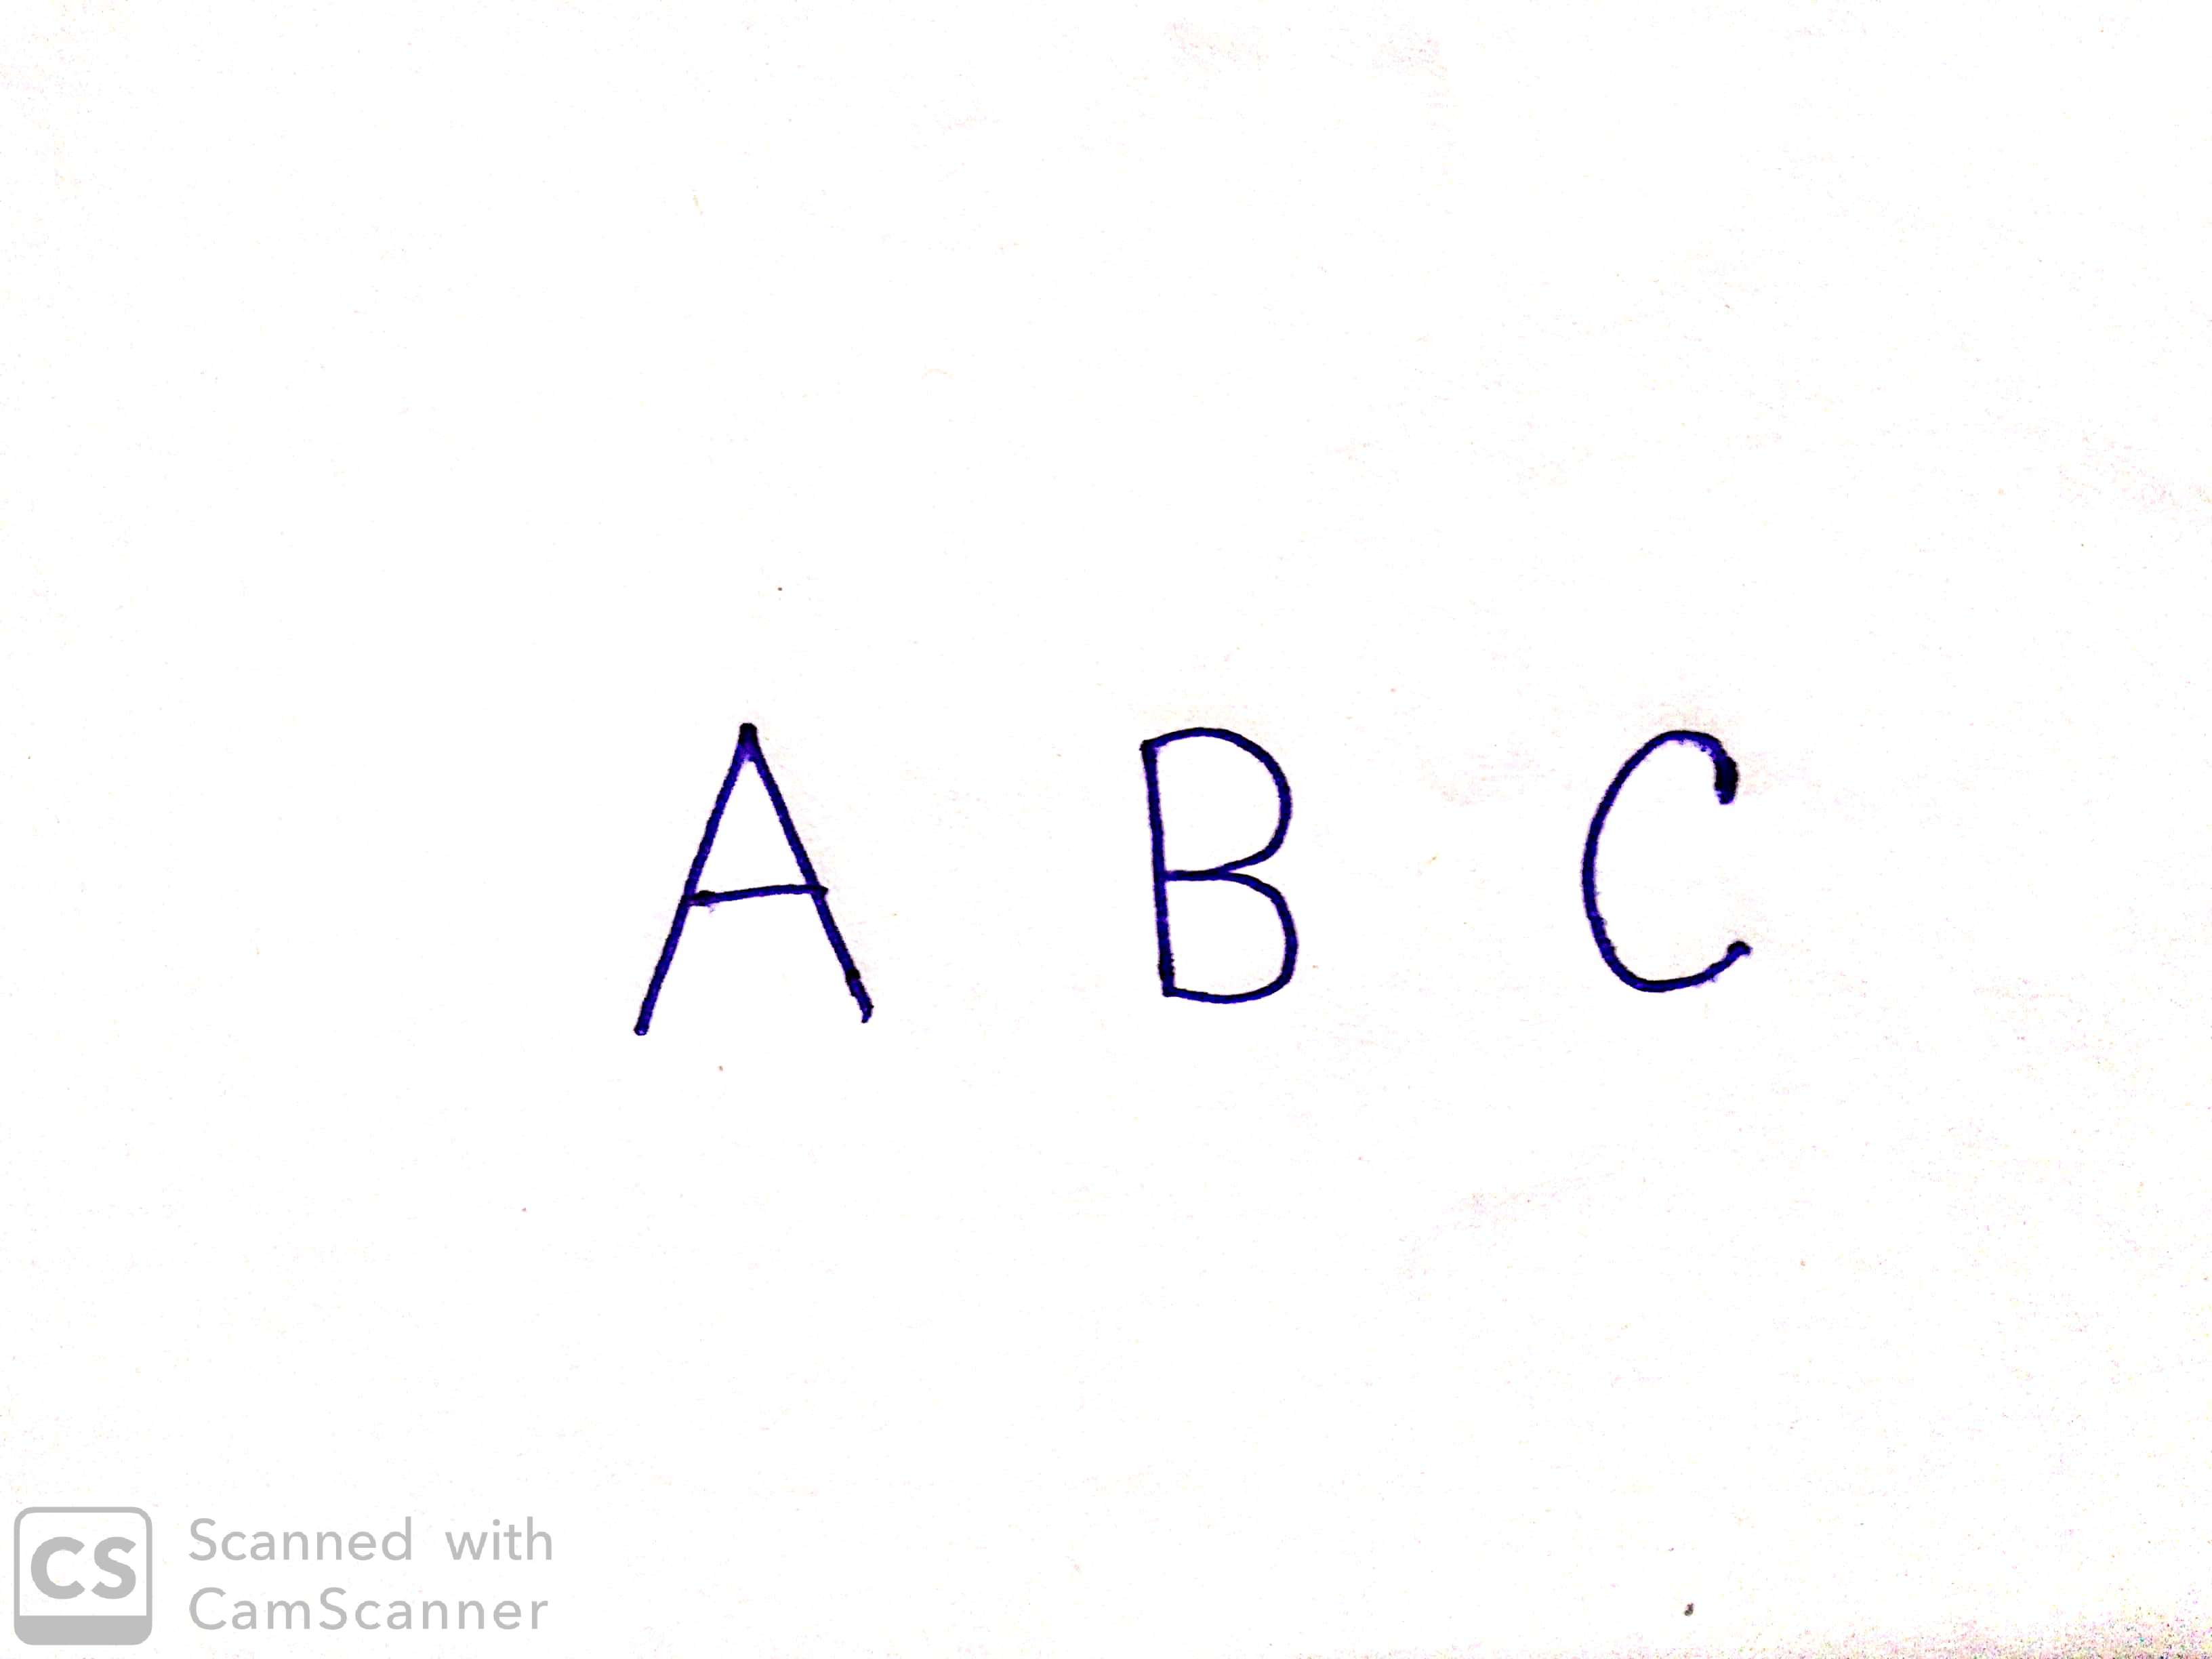 A B C
CS
Scanned with
CamScanner